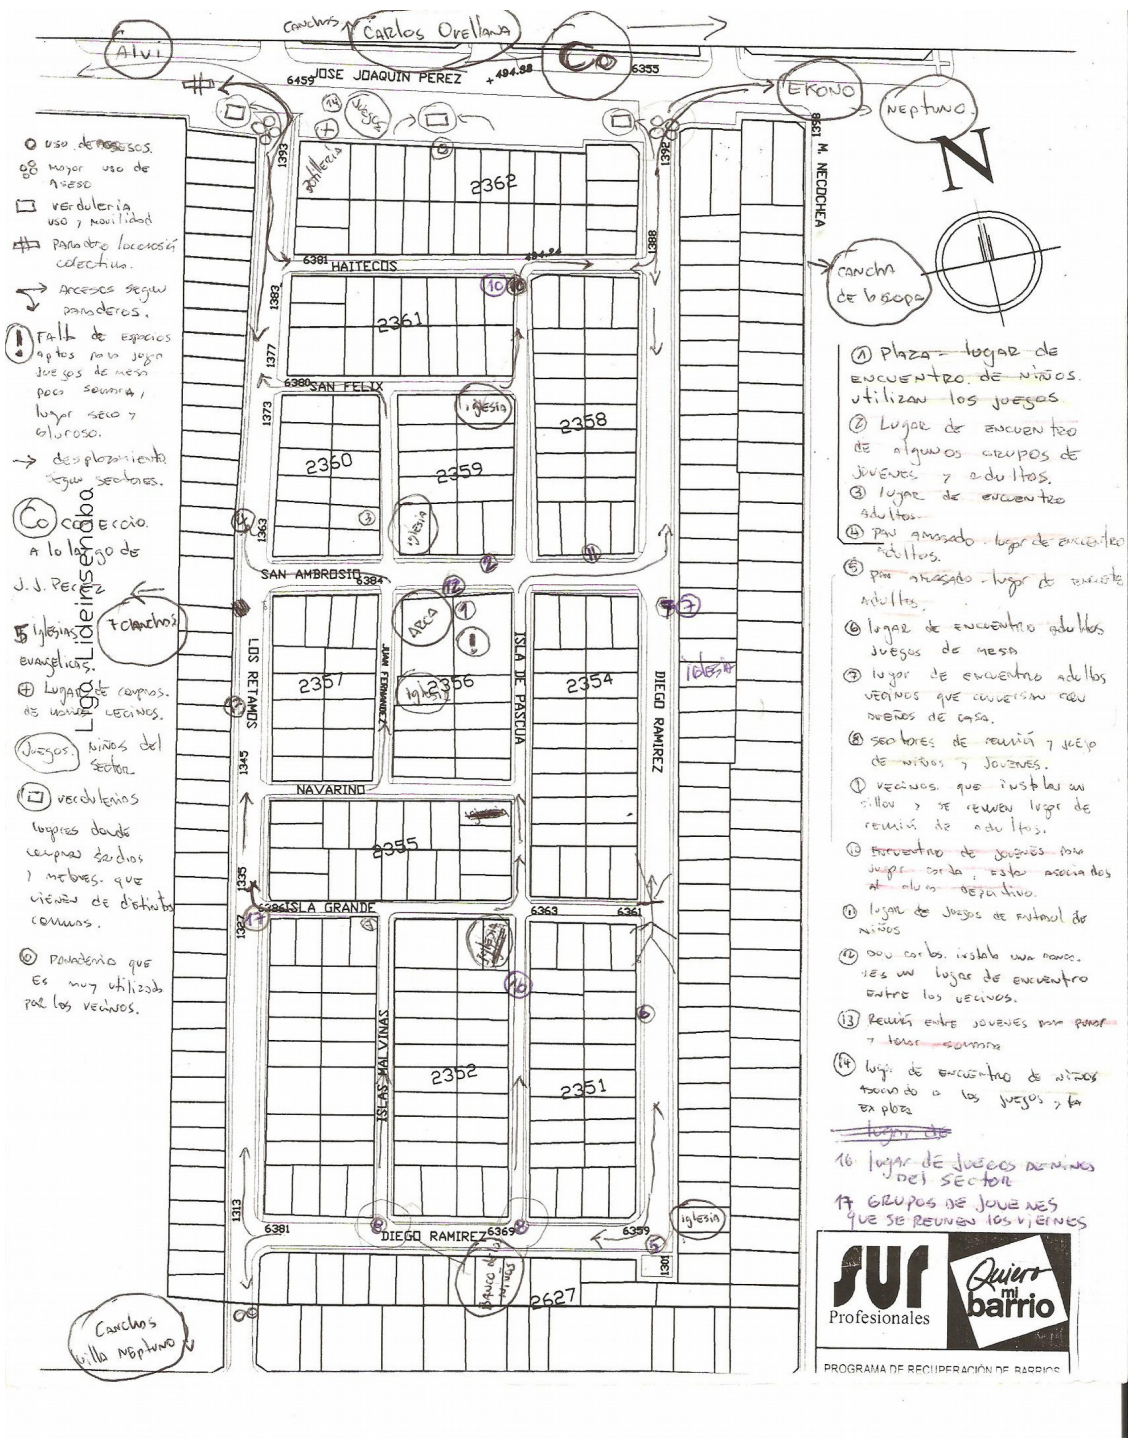 CANCHAS
CARLOS ORELLANA
ALVI
Co
6459
JOSE JOAQUIN PEREZ
+ 494.98
6355
EKONO
NEPTUNO
N
1398
M. NECOCHEA
CANCHA
14
JUEGOS
Botilleria
1393
1392
2362
1388
6381
HAITECOS
494.94
1383
10
10
2361
1377
6380
SAN FELIX
1373
iglesia
2358
2360
2359
3
iglesia
1363
2
11
SAN AMBROSIO
6384
12
ARCA
9
!
7
7 CANCHAS
LOS RETAMOS
JUAN FERNANDEZ
ISLA DE PASCUA
DIEGO RAMIREZ
iglesia
2357
iglesia
2356
2354
1345
NAVARINO
2355
1335
6386
ISLA GRANDE
6363
6361
1327
17
16
6
ISLAS MALVINAS
2352
2351
1313
6381
8
DIEGO RAMIREZ
6369
8
6359
5
iglesia
1301
BANCO DE LOS
NIÑOS
2627
CANCHAS
villa NEPTUNO
O USO DE ACCESOS.
mayor uso de
verduleria
uso y movilidad
paradero locomoción
colectiva.
ACCESOS según
paraderos.
! FALTA de ESPACIOS
aptos para jugar
juegos de mesa
poca sombra,
lugar seco y
caluroso.
→ desplazamiento
según sectores.
Co comercio.
A lo largo de
J.J. PEREZ
5 iglesias
EVANGELICAS.
+ LUGAR de compras.
JUEGOS. NIÑOS del
SECTOR
verdulerias
lugares donde
que
vienen de distintas
comunas.
PANADERIA que
Es muy utilizada
por los vecinos.
Liga Lideinsenaba
① PLAZA - lugar DE
ENCUENTRO DE NIÑOS.
utilizan los juegos
② Lugar DE ENCUENTRO
DE algunos GRUPOS DE
JOVENES y adultos.
③ lugar DE ENCUENTRO
Adultos.
④ PAN AMASADO - lugar DE ENCUENTRO
adultos.
⑤ PAN AMASADO - lugar DE ENCUENTRO
Adultos.
⑥ lugar DE ENCUENTRO adultos
JUEGOS DE MESA
⑦ lugar DE ENCUENTRO adultos
VECINOS QUE CONVERSAN CON
DUEÑOS DE CASA.
⑧ sectores de reunión y juego
de niños y JOVENES.
⑨ VECINOS. que instalan un
sillon y se reunen lugar de
reunión de adultos.
⑩ ENCUENTRO DE JOVENES para
asociados
al club deportivo.
⑪ lugar de juegos de futbol de
niños
⑫ Don Carlos. instala una banca.
es un lugar de ENCUENTRO
ENTRE los vecinos.
⑬ Reunión entre JOVENES para fumar
y tomar
⑭ lugar de ENCUENTRO DE NIÑOS
asociado a los juegos y la
16 lugar DE JUEGOS DE NIÑOS
DEL SECTOR
17 GRUPOS DE JOVENES
QUE SE REUNEN LOS VIERNES
SUR
Profesionales
Quiero
mi
barrio
PROGRAMA DE RECUPERACIÓN DE BARRIOS